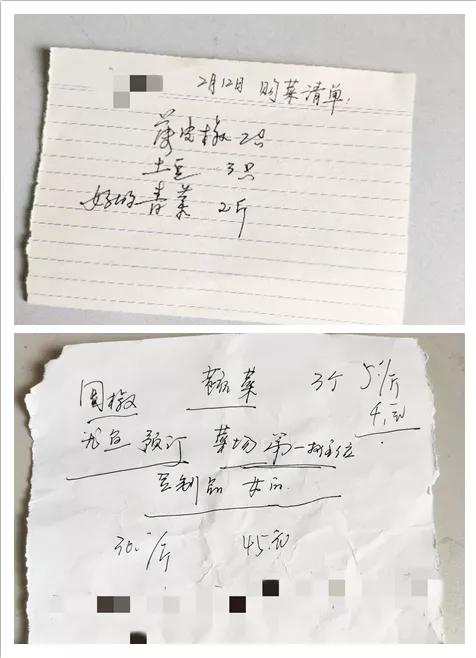 2月12日 购菜清单.
薄皮椒 2只
土豆 3只
好的青菜 2斤
圆椒 菜 3个 5/斤
4.元
预订 菜场 第一摊位
豆制品 女的
30/斤 45元